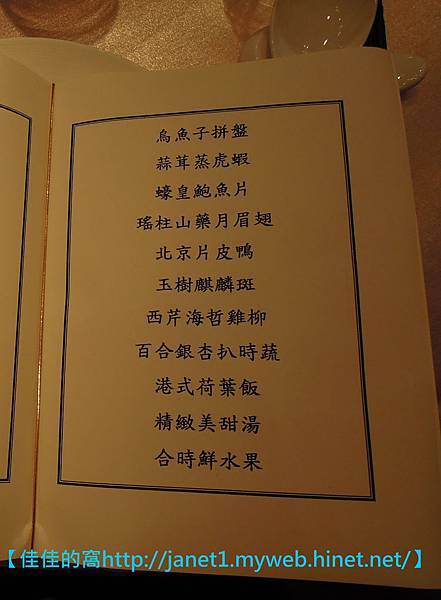 烏魚子拼盤
蒜茸蒸虎蝦
蠔皇鮑魚片
瑤柱山藥月眉翅
北京片皮鴨
玉樹麒麟斑
西芹海哲雞柳
百合銀杏扒時蔬
港式荷葉飯
精緻美甜湯
合時鮮水果
【佳佳的窩http://janet1.myweb.hinet.net/】